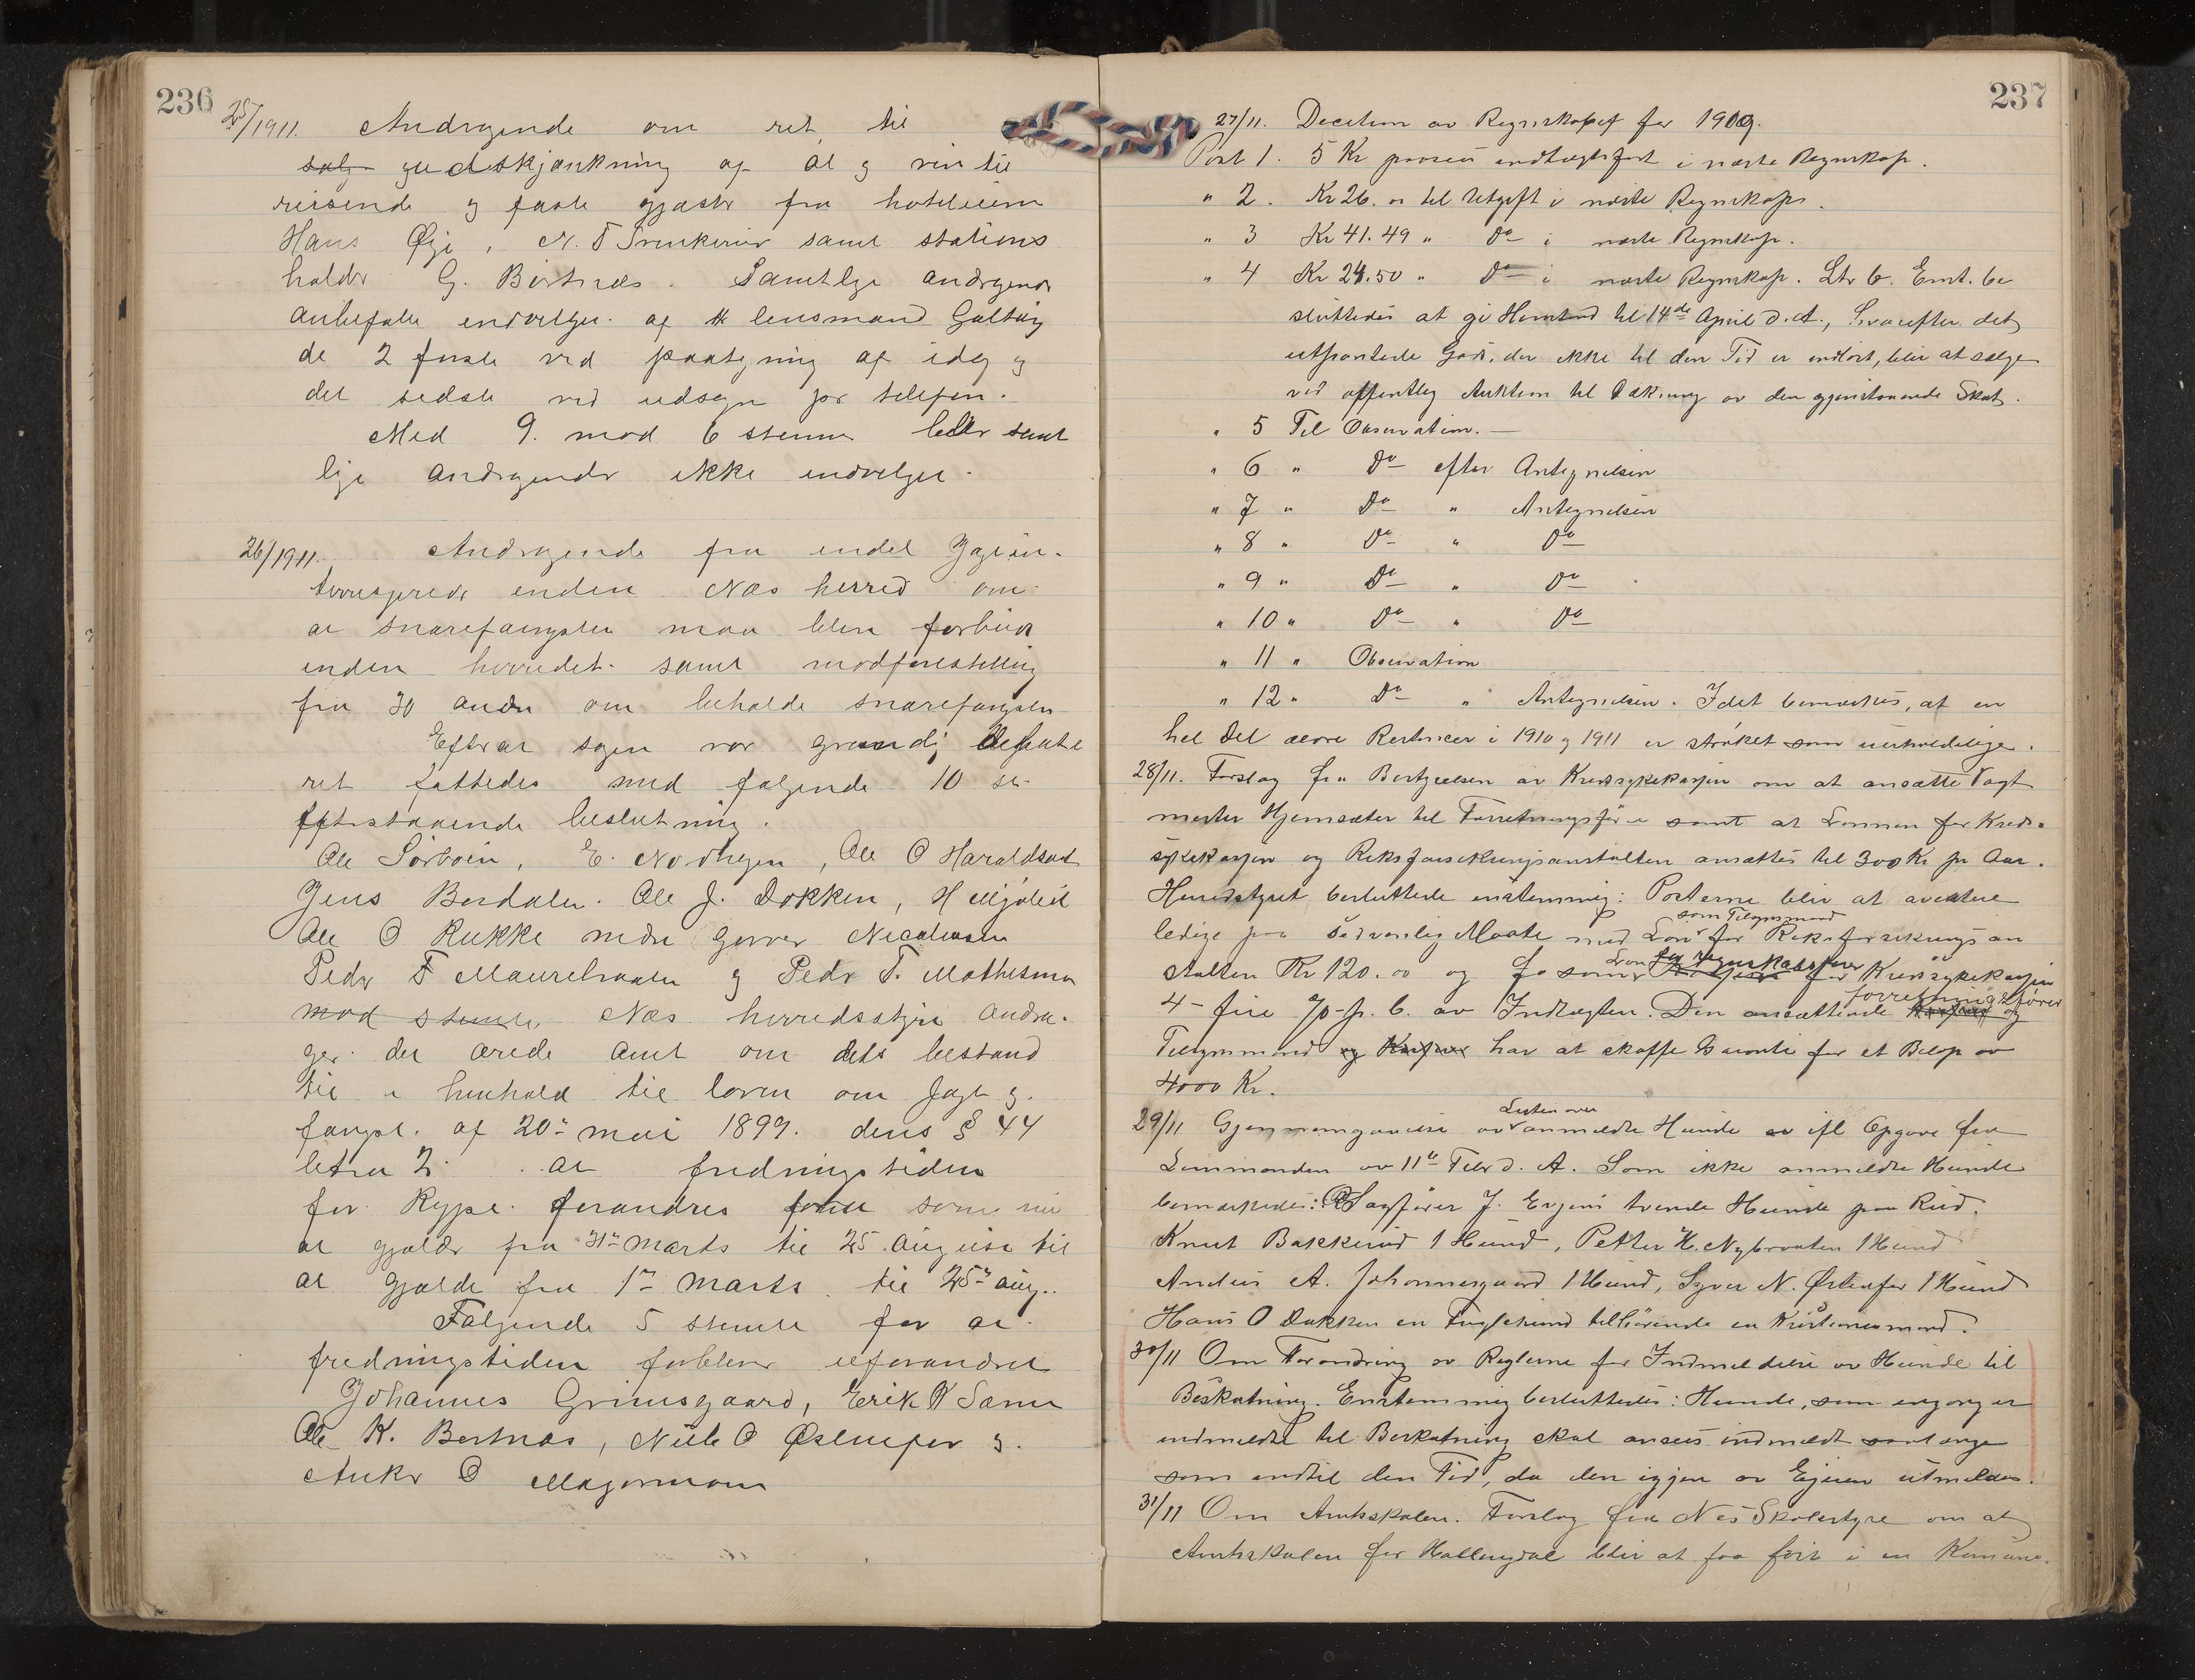 236
25/1911. Andragende om ret til
salg udskjænkning af øl og vin til
reisende og faste gjæster fra hoteleierne
Hans Øye, N. T. samt stations
holder G. Børtnes. Samtlige andragende
anbefales indvilget af lensmand Galtung
de 2 første ved paategning af idag og
det sidste ved udsagn per telefon.
Med 9. mod 6 stemmer blev samt
lige andragender ikke indvilget.
26/1911. Andragende fra endel Jagtin-
teresserede inden Næs herred om
at snarefangsten maa blive forbudt
inden herredet samt modforestilling
fra 30 andre om beholde snarefangsten
Efter at sagen var grundig debate
ret fattedes med følgende 10 st.
efterstaaende beslutning.
Ole Sørbøen, E. Nordhagen, Ole O Haraldset
Jens Berdalen. Ole J. Dokken, H
Ole O Rukke Nicolausen
Peder F Maurebraaten og Peder T. Mathismoen
mod stemte. Næs herredsstyre andra-
ger det ærede amt om dets bistand
til i henhold til loven om Jagt og
fangst. af 20de mai 1899. dens § 44
litra 2. at fredningstiden
for Rype. forandres som nu
at gjælde fra 31te marts til 25 august til
at gjælde fra 1ste marts til 25de aug..
Følgende 5 stemte for at
fredningstiden forbliver uforandret
Johannes Grimsgaard, Erik K
Ole K. Børtnæs, Niels O Østenfor og
Anker O
237
27/11. Decision av Regnskapet for 1909.
Post 1. 5 Kr indtægtsført i næste Regnskap.
" 2. Kr 26.00 til Utgift i næste Regnskap.
" 3 Kr 41.49 " Do i næste Regnskap.
" 4 Kr 24.50 " Do i næste Regnskap. Ltr b. Enst. be
sluttedes at gi Henstand til 14de April d.A., hvorefter det
utpantede Gods, der ikke til den Tid er indløst, blir at sælge
ved offentlig Auktion til Dækning av den gjenstaaende Skat.
" 5 Til Observation.
" 6 " Do efter Antegnelsen
" 7 " Do " Antegnelsen
" 8 " Do " Do
" 9 " Do " Do
" 10 " Do " Do
" 11 " Observation
" 12 " Do " Antegnelsen. Idet bemærkes, at en
hel Del ældre Restancer i 1910 og 1911 er strøket som uerholdelige.
28/11. Forslag fra Bestyrelsen av Kredssykekassen om at ansætte Vagt
mester Hjemsæter til Forretningsfører samt at Lønnen for Kreds-
sykekassen og Riksforsikringsanstalten ansættes til 300 Kr pr Aar.
Herredsstyret besluttede enstemmig: Posterne blir at avertere
som Tilsynsmand
ledige paa sedvanlig Maate med Løn for Riksforsikringsan
Løn for regnskabsfører
stalten Kr 120.00 og for Kredssykekassen
forretningsfører
4 - fire % p. C. av Indtægten. Den ansættende Kasserer og
Tilsynsmand og Kasserer har at skaffe Garanti for et Beløp av
4000 Kr.
Listen over
29/11 Gjennemgaaelse av anmeldte Hunde ifl Opgave fra
Lensmanden av 11te Febr d. A. Som ikke anmeldte Hunde
bemærkedes: Sagfører J. tvende Hunde paa Rud.
Knut Bakkerud 1 Hund, Petter H. Nybraaten 1 Hund
Andreas A. Johannesgaard 1 Hund, Syver N. Østenfor 1 Hund
Hans O Dokken en Fuglehund tilhørende en Kristianiamand.
30/11 Om Forandring av Reglerne for Indmeldelse av Hunde til
Beskatning. Enstemmig besluttedes: Hunde, som engang er
indmeldt til Beskatning skal ansees indmeldt saalænge
som indtil den Tid, da den igjen av Eieren utmeldes.
31/11 Om Amtsskolen. Forslag fra Nes Skolestyre om at
Amtsskolen for Hallingdal blir at faa i en Komune.